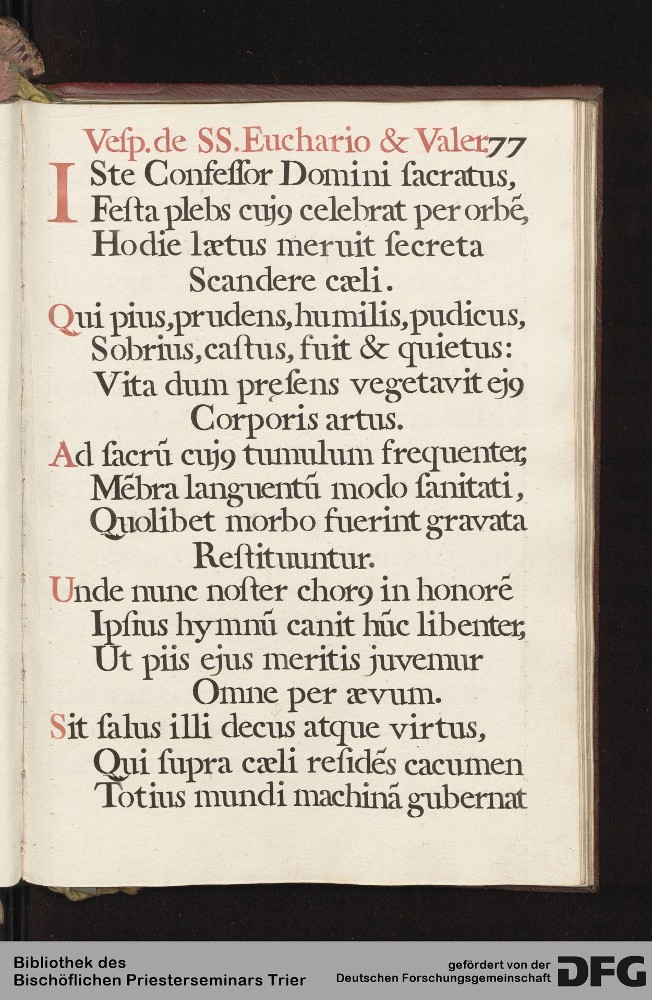 Veſp. de SS. Euchario & Valer. 77
ISte Confeſſor Domini ſacratus,
Feſta plebs cujꝰ celebrat per orbē,
Hodie lætus meruit ſecreta
Scandere cæli.
Qui pius, prudens, humilis, pudicus,
Sobrius, caſtus, fuit & quietus:
Vita dum pręſens vegetavit ejꝰ
Corporis artus.
Ad ſacrū cujꝰ tumulum frequenter,
Mēbra languentū modo ſanitati,
Quolibet morbo fuerint gravata
Reſtituuntur.
Unde nunc noſter chorꝰ in honorē
Ipſius hymnū canit hūc libenter,
Ut piis ejus meritis juvemur
Omne per ævum.
Sit ſalus illi decus atque virtus,
Qui ſupra cæli reſidēs cacumen
Totius mundi machinā gubernat
Bibliothek des
Bischöflichen Priesterseminars Trier
gefördert von der
Deutschen Forschungsgemeinschaft
DFG